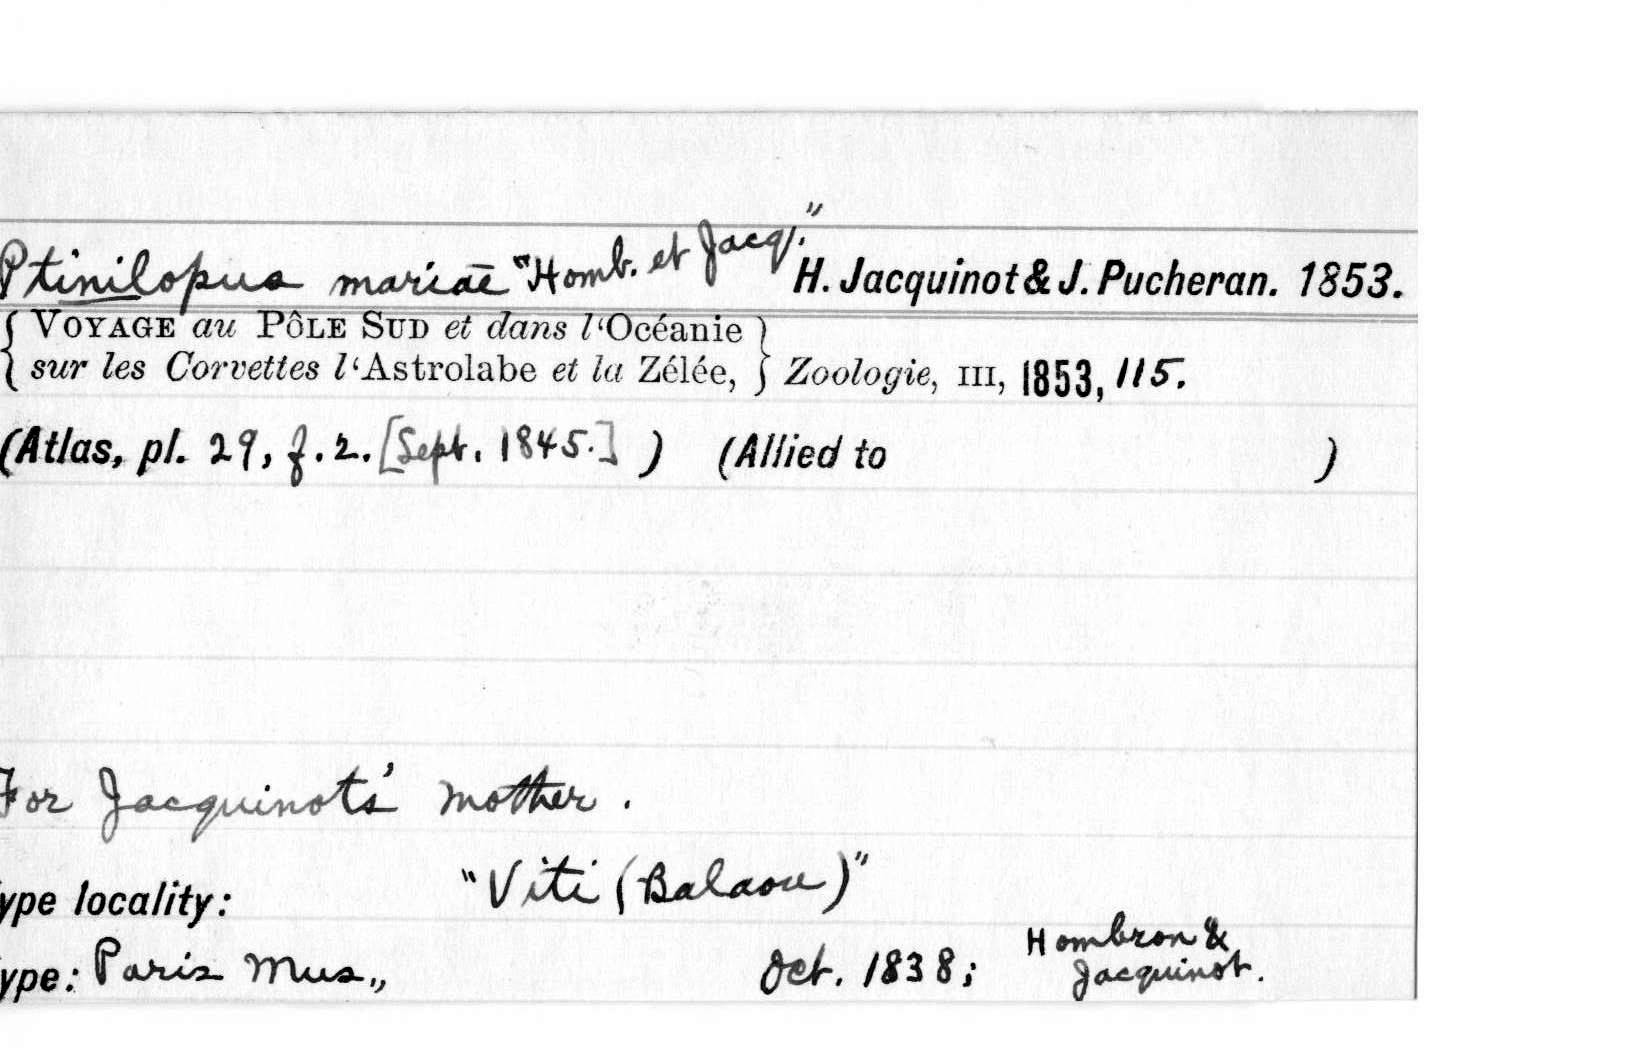 Ptinilopus mariae "Homb. et Jacq." H. Jacquinot & J. Pucheran. 1853.
{ VOYAGE au PÔLE SUD et dans l'Océanie }
{ sur les Corvettes l'Astrolabe et la Zélée, } Zoologie, III, 1853, 115.
(Atlas, pl. 29, f. 2. [Sept. 1845.] ) (Allied to )
For Jacquinot's mother.
ype locality: "Viti (Balaou)"
ype: Paris Mus., Oct. 1838; Hombron &
Jacquinot.